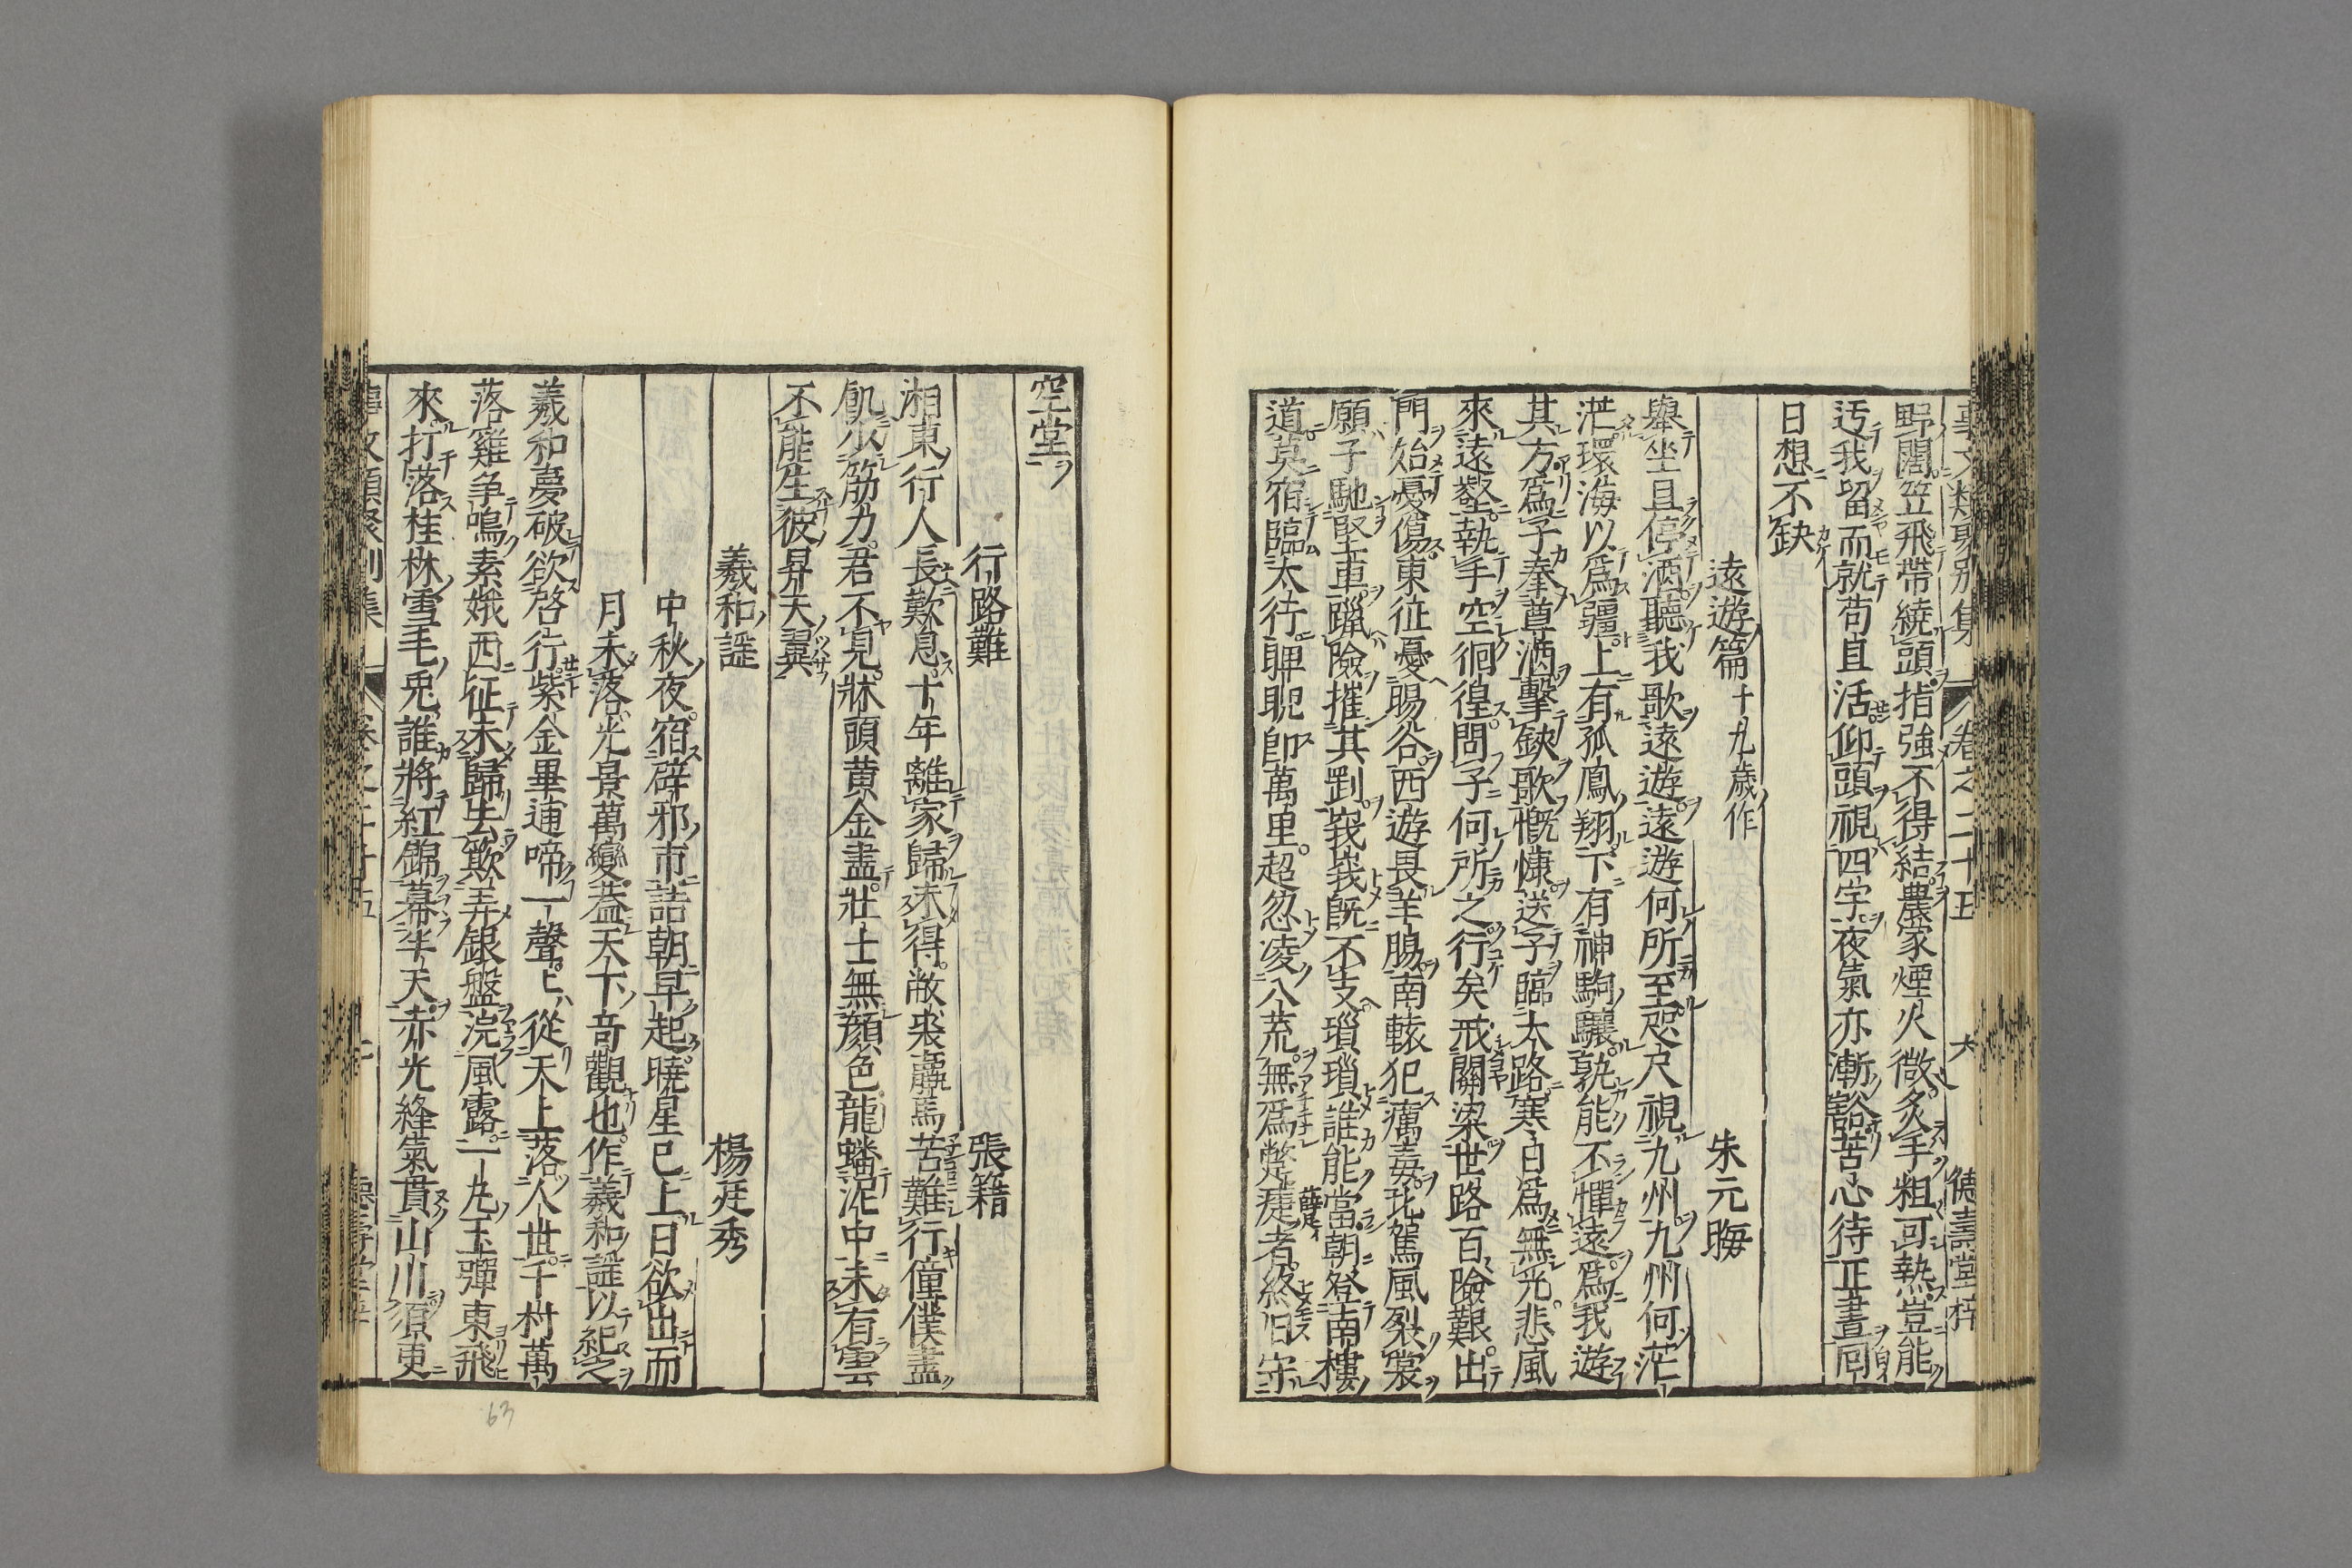 野闊笠飛帶繞頭指強不得結農家煙火微炙手粗可熱豈能
迃我留而就苟且活仰頭視四字夜氣亦漸谿苦心待正晝同
日想不缺
遠遊篇十九歲作 朱元晦
舉坐且停酒聽我歌遠遊遠遊何所至咫尺視九州九州何茫
茫環海以爲疆上有孤鳳翔下有神駒驤孰能不憚遠爲我遊
其方爲子奉尊酒擊鋏歌慨慷送子臨太路寒日爲無光悲風
來遠壑執手空徊徨問子何所之行矣戒關梁世路百險艱出
門始憂傷東征憂賜谷西遊畏羊膓南轅犯癘毒北駕風裂裳
願子馳堅車躐險摧其剛峩峩既不支瑣瑣誰能當朝登南樓
道莫宿臨太行睥睨即萬里超忽凌八荒無爲蹩躠者終日守
空堂
行路難 張籍
湘東行人長歎息十年離家歸未得敝裘羸馬苦難行僮僕盡
飢少筋力君不見牀頭黄金盡壯士無顔色龍蟠泥中未有雲
不能生彼昇天翼
羲和謡 楊廷秀
中秋夜宿辟邪市詰朝早起曉星已上日欲出而
月未落光景萬變蓋天下竒觀也作羲和謡以紀之
羲和夢破欲啓行紫金畢逋啼一聲聲從天上落人世千村萬
落雞争鳴素娥西征未歸去簸弄銀盤浣風露一丸玉彈東飛
來打落桂林雪毛兎誰將紅錦幕半天赤光絳氣貫山川須臾